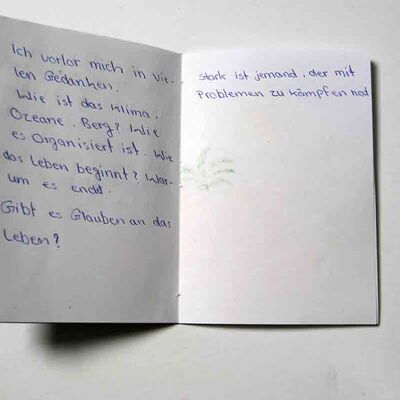 Ich vorlor mich in vie-
len Gedanken.
Wie ist das Klima,
Ozeane, Berg? Wie
es Organisiert ist. Wie
das Leben beginnt? War-
um es endet.
Gibt es Glauben an das
Leben?
stark ist jemand, der mit
Problemen zu kämpfen hat